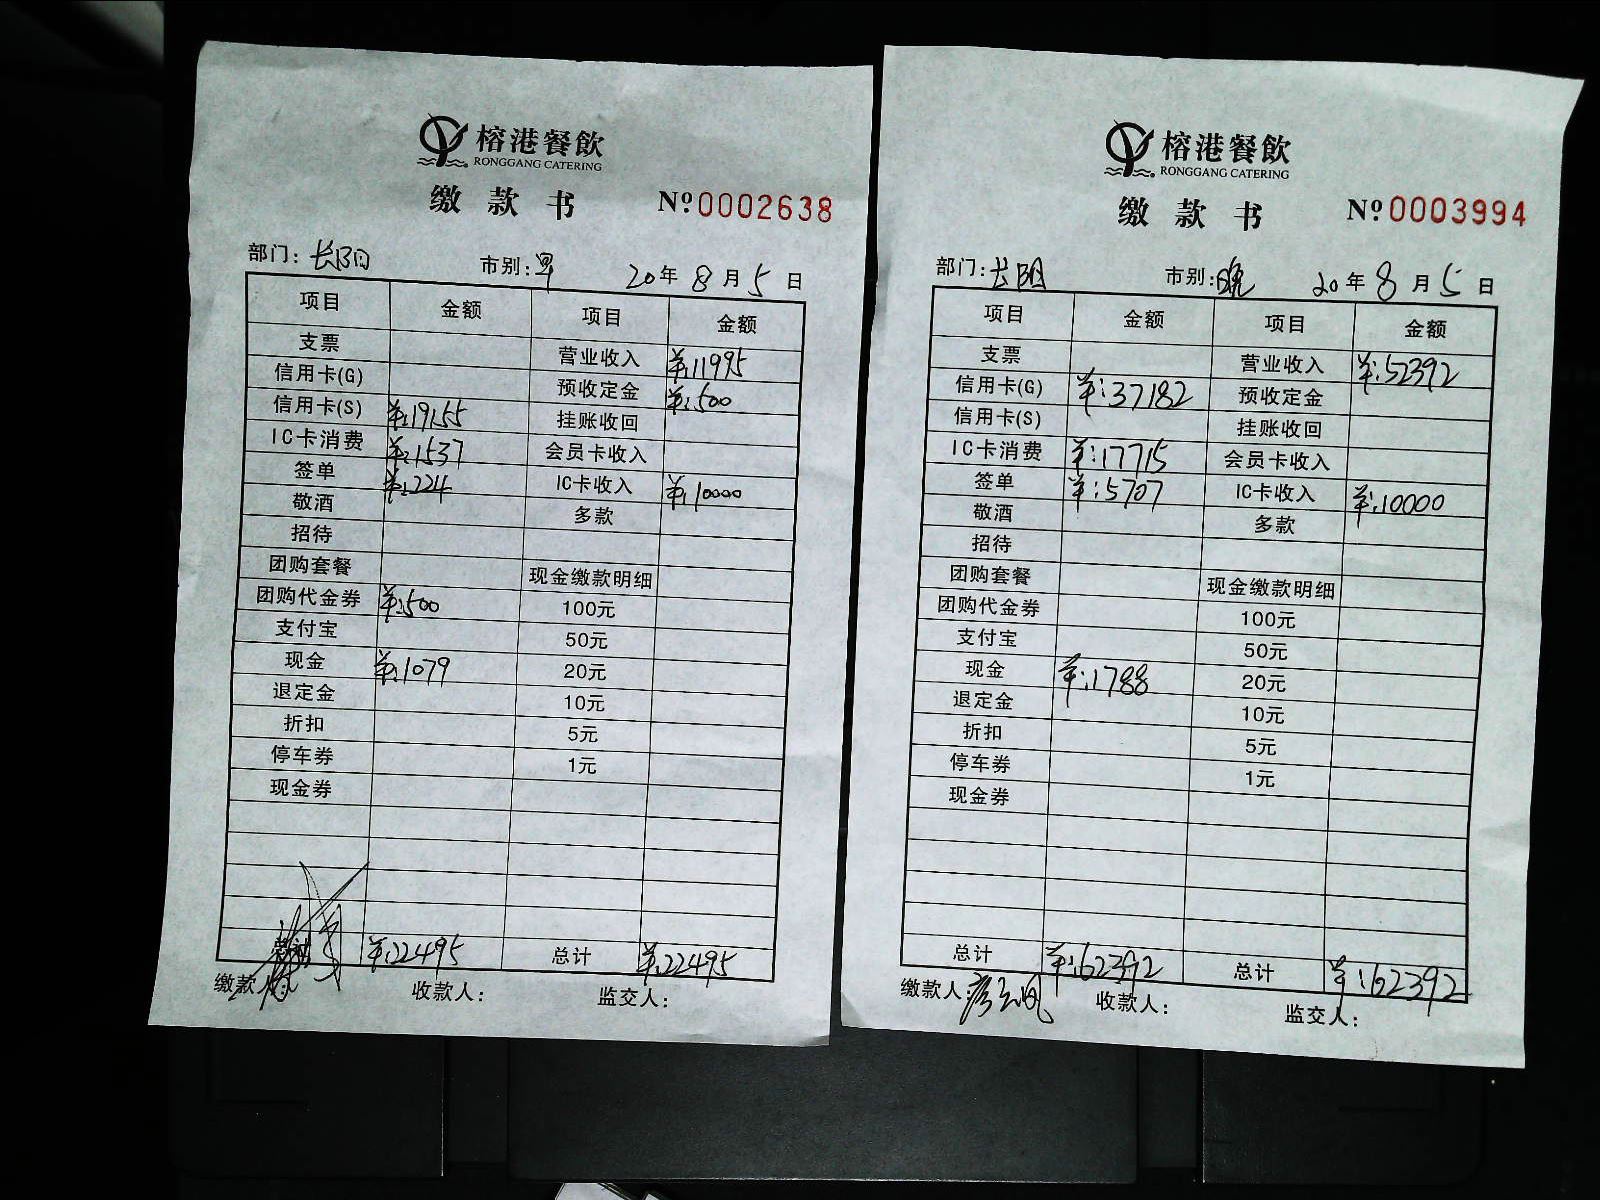 榕港餐飲
RONGGANG CATERING
缴款书 Nº0002638
部门：长阳 市别：早 20年8月5日
项目 金额 项目 金额
支票 营业收入 ¥:11995
信用卡(G) 预收定金 ¥:500
信用卡(S) ¥:19155 挂账收回
IC卡消费 ¥:1537 会员卡收入
签单 ¥:224 IC卡收入 ¥:10000
敬酒 多款
招待
团购套餐 现金缴款明细
团购代金券 ¥:500 100元
支付宝 50元
现金 ¥:1079 20元
退定金 10元
折扣 5元
停车券 1元
现金券
¥:22495 总计 ¥:22495
缴款人： 收款人： 监交人：
榕港餐飲
RONGGANG CATERING
缴款书 Nº0003994
部门：长阳 市别：晚 20年8月5日
项目 金额 项目 金额
支票 营业收入 ¥:52392
信用卡(G) ¥:37182 预收定金
信用卡(S) 挂账收回
IC卡消费 ¥:17715 会员卡收入
签单 ¥:5707 IC卡收入 ¥:10000
敬酒 多款
招待
团购套餐 现金缴款明细
团购代金券 100元
支付宝 50元
现金 ¥:1788 20元
退定金 10元
折扣 5元
停车券 1元
现金券
总计 ¥:62392 总计 ¥:62392
缴款人： 收款人： 监交人：